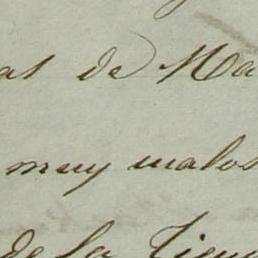 as de Ma
muy malos
de la Tien